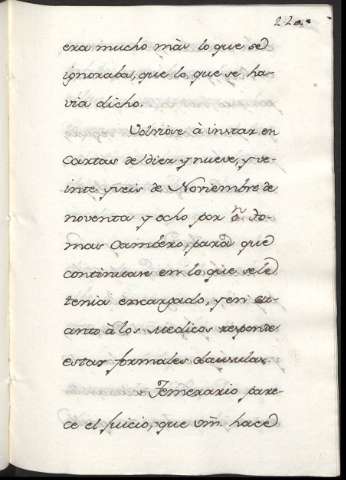 era mucho más lo que se
ignoraba, que lo que se ha-
via dicho.
Volviose à instar en
Cartas de diez y nueve, y ve-
inte y seis de Noviembre de
noventa y ocho por
mas para que
continuase en lo que se le
tenia encargado, y en cu-
anto à los Medicos responde
estas formales clausulas.
Temerario pare-
ce el juicio, que Vm. hace